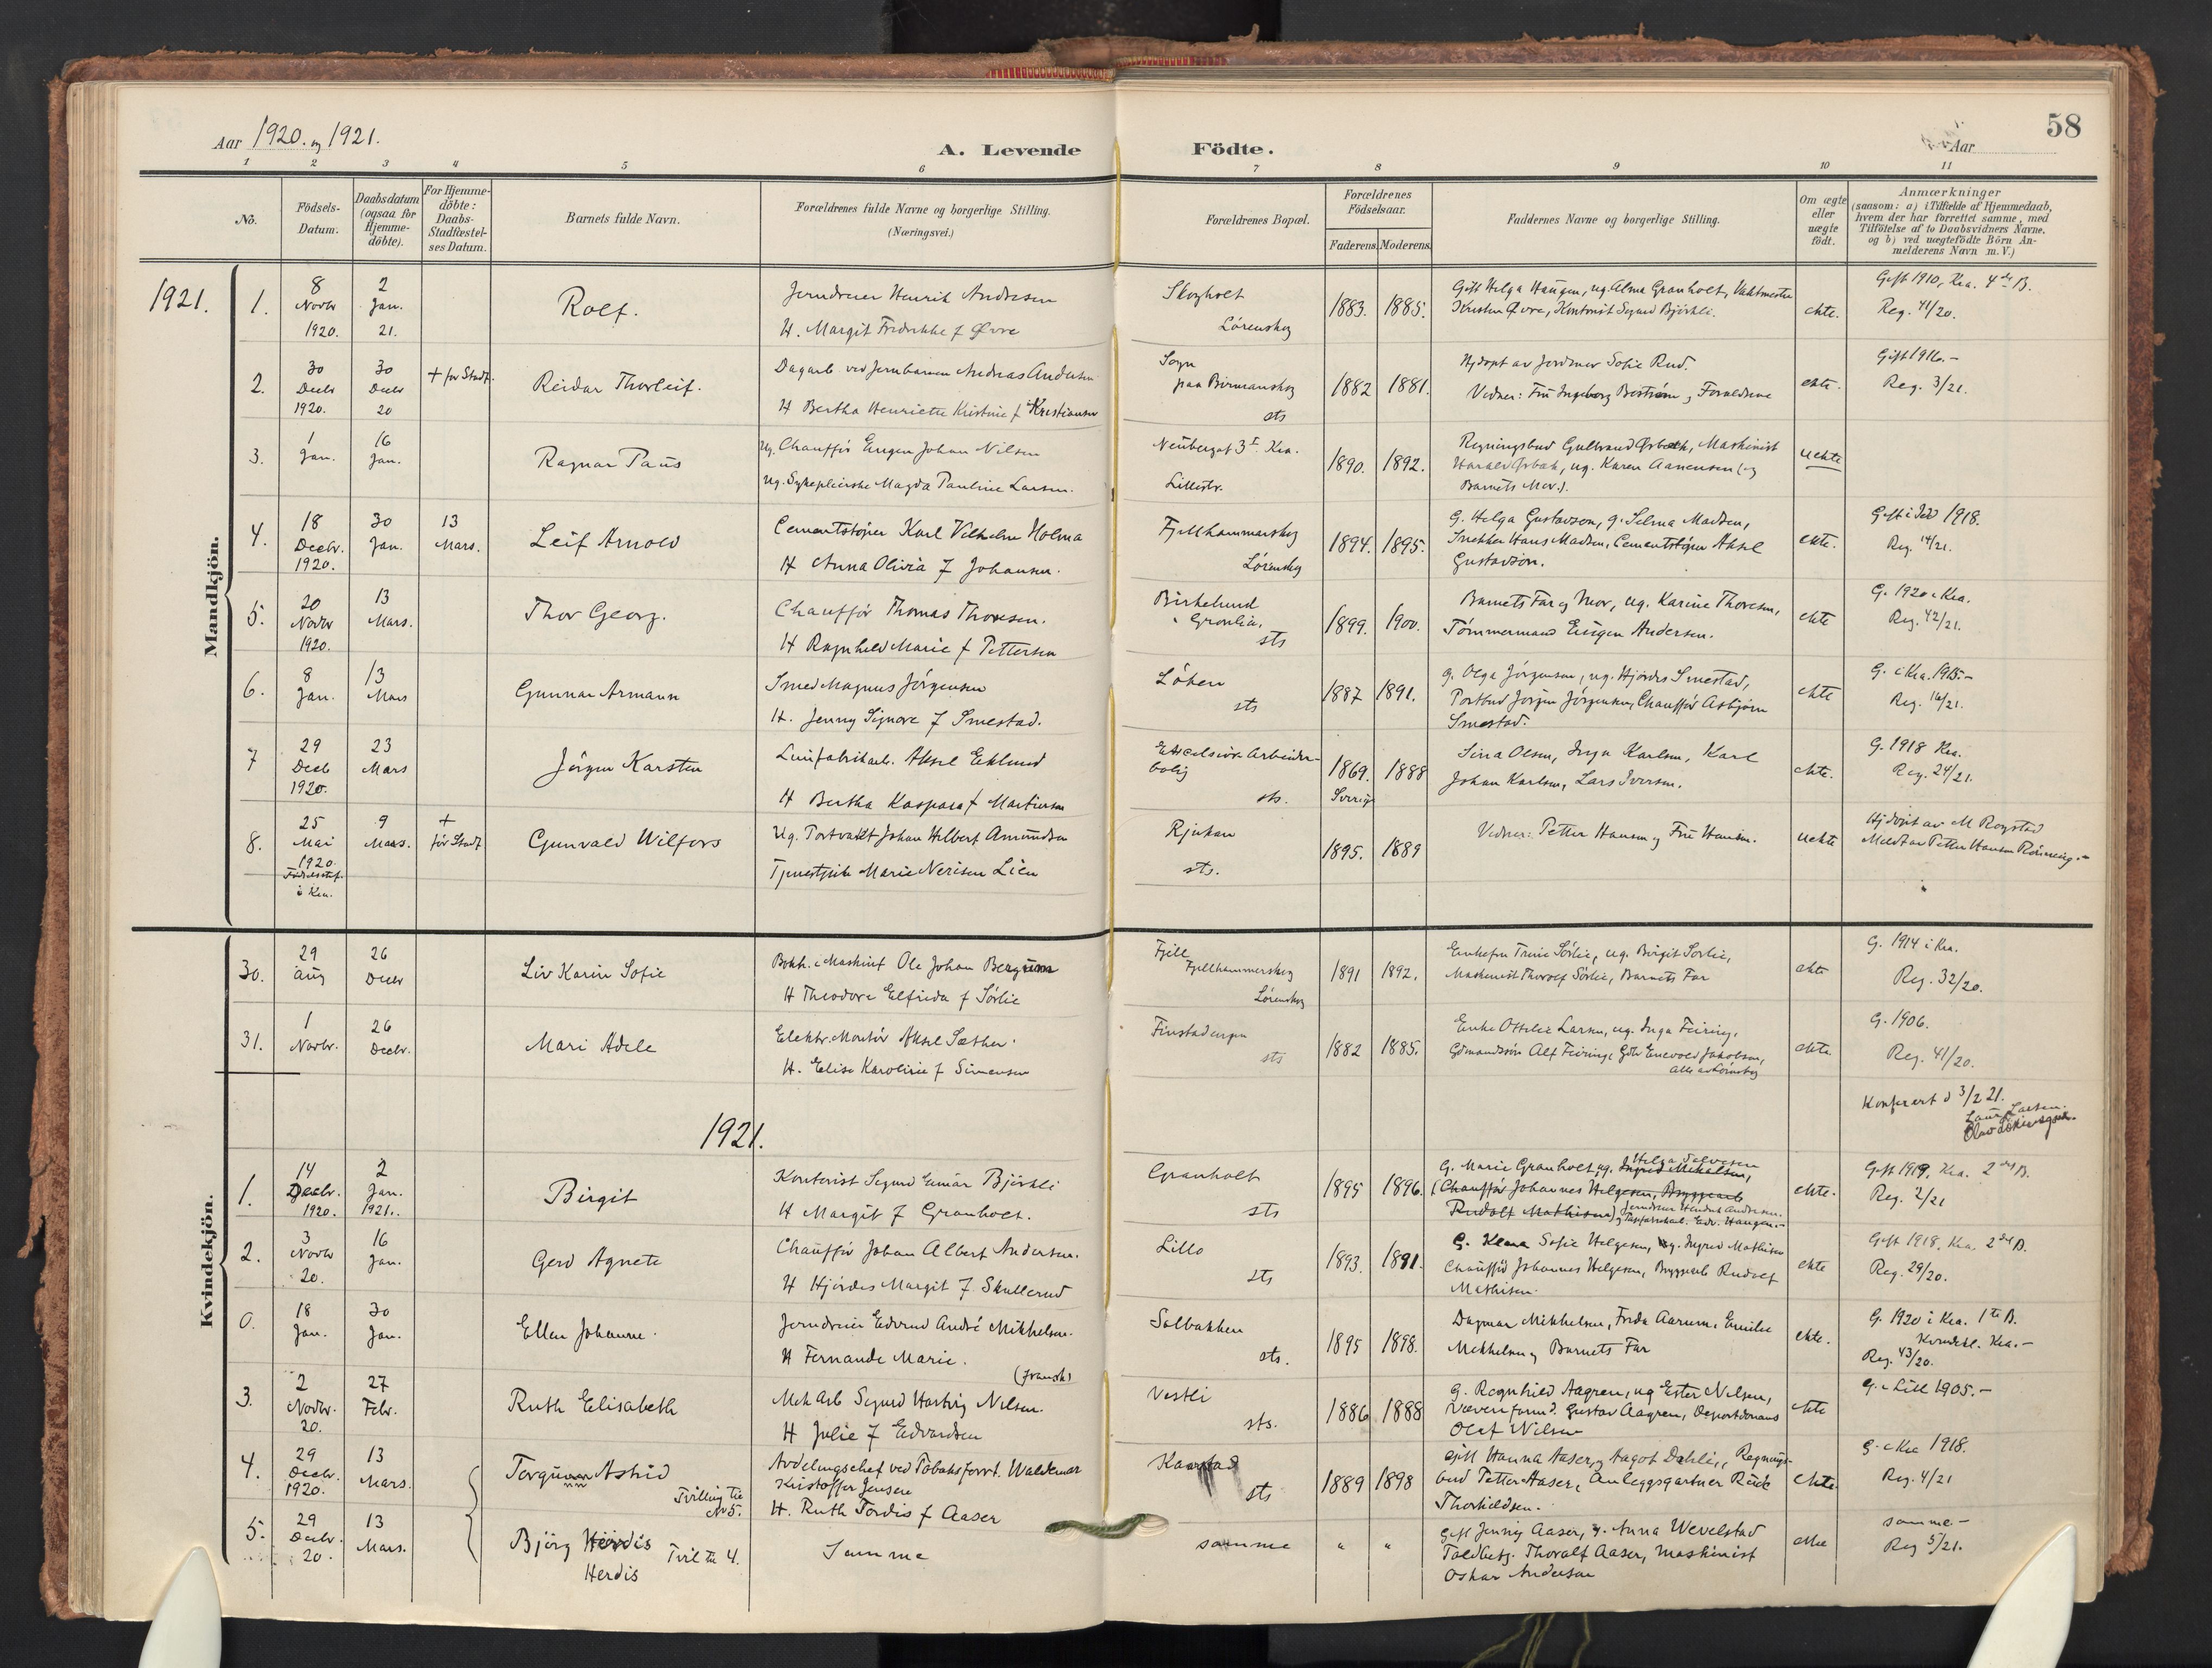 58
Aar 1920. og 1921.
A. Levende Födte.
Aar
1 2 3 4 5 6 7 8 9 10 11
No.
Födsels-
Datum.
Daabsdatum
(ogsaa for
Hjemme-
döbte).
For Hjemme-
döbte:
Daabs-
Stadfæstel-
ses Datum.
Barnets fulde Navn.
Forældrenes fulde Navne og borgerlige Stilling.
(Næringsvei.)
Forældrenes Bopæl.
Forældrenes
Födselsaar.
Faderens. Moderens.
Faddernes Navne og borgerlige Stilling.
Om ægte
eller
uægte
födt.
Anmærkninger
(saasom: a) i Tilfælde af Hjemmedaab,
hvem der har forrettet samme, med
Tilföielse af to Daabsvidners Navne,
og b) ved uægtefödte Börn An-
melderens Navn m.V.)
Mandkjön.
1921.
1.
8
Novbr
1920.
2
Jan.
21.
Rolf.
Jerndreier Henrik Andresen
H. Margit Fredrikke f Øvre
Skogholt
Lörenskog
1883. 1885.
Gift Helga Haugen, ug. Alma Granholt, Vaktmester
Kristen Øvre, Kontorist Sigurd Björkli.
ekte.
Gift 1910, Kra. 4de B.
Reg. 41/20.
2.
30
Decbr
1920.
30
Decbr
20
+ før Stadf.
Reidar Thorleif.
Dagarb. ved Jernbanen Andreas Andersen
H Bertha Henriette Kristine f Kristiansen
Sogn
paa
sts
1882 1881.
Hjdøpt av Jordmor Sofie Rud.
Vidner: Fru Ingeborg og Foreldrene
ekte.
Gift 1916.-
Reg. 3/21.
3.
1
Jan.
16
Jan.
Ragnar Paus
Ug. Chauffør Eugen Johan Nilsen
Ug. Sykepleierske Magda Pauline Larsen.
Neubergat 3 I Kra.
Lillestr.
1890. 1892.
Regningsbud Gulbrand Ørbæk, Maskinist
Harald Ørbæk, ug. Karen Aanensen (og
Barnets Mor.).
uekte
4.
18
Decbr.
1920.
30
Jan.
13
Mars.
Leif Arnold
Cementstöper Karl Vilhelm Holma
H Anna Olivia f Johansen.
Fjellhammarskog
Lörenskog
1894. 1895.
G. Helga Gustavson, g. Selma Madsen,
Snekker Hans Madsen, Cementstöper Aksel
Gustavson.
ekte.
Gift i 1918.
Reg. 14/21.
5.
20
Novbr
1920.
13
Mars.
Thor Georg.
Chaufför Thomas Thoresen.
H Ragnhild Marie f Pettersen
Birkelund
i Grönlia.
sts
1899. 1900.
Barnets Far og Mor, ug. Karine Thoresen,
Tömmermand Eugen Andersen.
ekte
G. 1920 i Kra.
Reg. 42/21.
6.
8
Jan.
13
Mars
Gunnar Armann
Smed Magnus Jörgensen
H. Jenny Signore f Smestad.
Löken
sts
1887 1891.
g. Olga Jörgensen, ug. Hjördis Smestad,
Postbud Jörgen Jörgensen, Chauffør Asbjørn
Smestad.
ekte
G. i Kra. 1915.-
Reg. 16/21.
7
29
Decb
1920.
23
Mars
Jörgen Karsten
Limfabrikarb. Aksel Eklund
H Bertha Kaspara f Martinsen
Excelsior Arbeider-
bolig
sts.
1869. 1888
Sverige
Sina Olsen, Inga Karlsen, Karl
Johan Karlsen, Lars Iversen.
ekte.
G. 1918 Kra.
Reg. 24/21.
8.
25
Mai
1920.
i Kra.
9
Mars.
+
før Stadf
Gunvald Wilfors
Ug. Portvakt Johan Hilbert Amundsen
Tjenestpike Marie Nerisen Lien
Rjukan
sts.
1895. 1889
Vidner: Petter Hansen og Fru Hansen.
uekte
Hjdöpt av M Rogstad
Meldt av Petter Hansen Rönning.-
Kvindekjön.
30.
29
Aug
26
Decbr
Liv Karin Sofie
Bokh. i Maskinf Ole Johan Bergum
H Theodora Elfrida f Sörlie
Fjell
Fjellhammerskog
Lörenskog
1891 1892.
Enkefru Trine Sörlie, ug. Birgit Sörlie,
Maskinist Thorolf Sörlie, Barnets Far
ekte
G. 1914 i Kra.
Reg. 32/20.
31.
1
Novbr.
26
Decbr.
Mari Adele
Elektr. Montör Aksel Sæther.
H. Elise Karoline f Simensen
Finstadengen
sts
1882 1885.
Enke Ottilie Larsen, ug. Inga Feiring,
Gdmandssön Alf Feiring, Gdbr Enevold Jakobsen,
alle av Lörenskog
ekte
G. 1906.
Reg. 41/20.
Konferert d 3/2 21.
Laur Larsen.
1921.
1.
14
Decbr.
1920.
2
Jan.
1921.
Birgit
Kontorist Sigurd Einar Björkli
H Margit f Granholt.
Granholt
sts
1895 1896.
Helga Salvesen
G. Marie Granholt, ug. Ingrid Mikalsen,
(Chauffør Johannes Helgesen, Bryggearb
Rudolf Mathisen) Jerndreier Henrik Andresen.
og Edv. Haugen.-
ekte.
Gift 1919, Kra. 2det B.
Reg. 2/21
2.
3
Novbr
20.
16
Jan.
Gerd Agnete
Chauffør Johan Albert Andersen.
H Hjördis Margit f Skullerud
Lillo
sts
1893. 1891.
G. Klara Sofie Helgesen, ug. Ingrid Mathisen
Chauffør Johannes Helgesen, Bryggearb Rudolf
Mathisen.
ekte
Gift 1918, Kra. 2det B.
Reg. 29/20.
0.
18
Jan.
30
Jan.
Ellen Johanne.
Jerndreier Edvard André Mikkelsen.
H Fernande Marie.
(fransk)
Solbakken
sts.
1895 1898.
Dagmar Mikkelsen, Frida Aarum, Emilie
Mikkelsen og Barnets Far
ekte.
G. 1920 i Kra. 1ste B.
Kra.-
Reg. 43/20.
3.
2
Novbr.
20.
27
Febr.
Ruth Elisabeth
Mek Arb Sigurd Hartvig Nilsen.
H Julie f Edvardsen
Vestli
sts.
1886 1888
g. Ragnhild Aagren, ug Ester Nilsen,
Væveriformd. Gustav Aagren,
Olaf Nilsen
ekte
G. i Lill 1905.-
4.
29
Decbr.
1920.
13
Mars.
Torgunn Astrid
Tvilling til
No 5.
Avdelingschef ved Tobaksforr. Waldemar
Kristoffer Jensen
H. Ruth Tordis f Aaser
Kaarstad
sts
1889 1898
Gift Hanna Aaser, Aagot Dahli, Regnings-
bud Petter Aaser, Anleggsgartner
Thorkildsen.
ekte
G. i Kra 1918.
Reg. 4/21
5.
29
Decbr.
20.
13
Mars.
Björg Hördis
Herdis
Tvil til 4.
Samme
samme
" "
Gift Jenny Aaser, g. Anna Wevelstad
Toldbetj. Thoralf Aaser, Maskinist
Oskar Anderson
ekte
samme-
Reg 5/21.